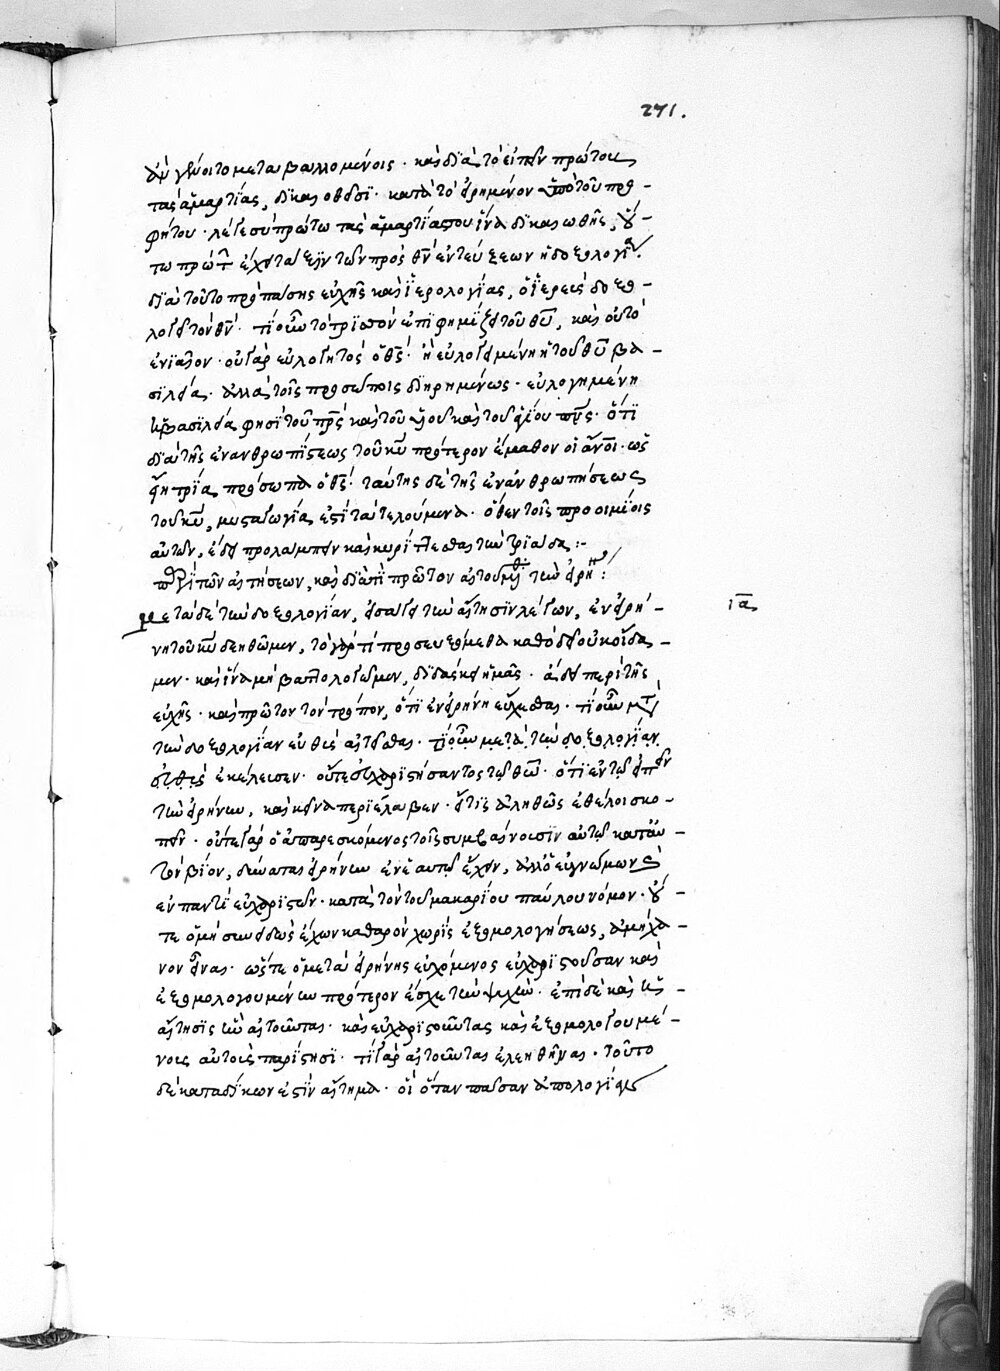 271.
ἂν γένοιτο μεταβαλλομένοις · καὶ διὰ τὸ εἰπεῖν πρώτους
τὰς ἁμαρτίας, δικαιοῦσι · κατὰ τὸ εἰρημένον ὑπὸ τοῦ προ –
φήτου · λέγε σὺ πρῶτος τὰς ἁμαρτίας σου ἵνα δικαιωθῇς, οὕ –
τω πρώτ ἔχει τάξιν τῶν πρὸς θν ἐντεύξεων ἡ δοξολογία.
διὰ τοῦτο πρὸ πάσης εὐχῆς καὶ ἱερολογίας, ὁ ἱερεὺς δοξο –
λογεῖ τὸν θν · τί οὖν τὸ τρισσὸν ἐπιφημίζει τοῦ θυ, καὶ οὐ τὸ
ἑνιαῖον · οὐ γὰρ εὐλογητὸς ὁ θς · ἢ εὐλογημένη ἡ τοῦ θυ βα –
σιλεία · ἀλλὰ τοῖς προσώποις διῃρημένως · εὐλογημένη
ἡ βασιλεία φησὶ τοῦ πρς καὶ τοῦ υου καὶ τοῦ ἁγίου πνς · ὅτι
διὰ τῆς ἐνανθρωπήσεως τοῦ κυ πρότερον ἔμαθον οἱ ἄνοι · ὡς
εἴη τρία πρόσωπα ὁ θς · ταύτης δὲ τῆς ἐνανθρωπήσεως
τοῦ κυ, μυσταγωγία ἐστὶ τὰ τελούμενα · ὅθεν τοῖς προοιμίοις
αὐτῶν, ἔδει προλάμπειν καὶ κηρύττεσθαι τὴν τριάδα :-
περὶ τῶν αἰτήσεων, καὶ διατί πρῶτον αἰτοῦμεθ τὴν εἰρή :
ια
μετὰ δὲ τὴν δοξολογίαν, εἰσάγει τὴν αἴτησιν λέγων, ἐν εἰρή –
νῃ τοῦ κυ δεηθῶμεν, τὸ γὰρ τί προσευξόμεθα καθὸ δεῖ οὐκ οἴδα –
μεν · καὶ ἵνα μὴ βαττολογῶμεν, διδάσκει ἡμᾶς · ἃ δεῖ περὶ τῆς
εὐχῆς · καὶ πρῶτον τὸν τρόπον, ὅτι ἐν εἰρήνῃ εὔχεσθαι · τί οὖν μετ
τὴν δοξολογίαν εὐθὺς αἰτεῖσθαι · τί οὖν μετὰ τὴν δοξολογίαν
εὐθὺς ἐκέλευσεν · οὔπω εὐχαριστήσαντος τῷ θω · ὅτι ἐν τῷ εἰπεῖν
τὴν εἰρήνην, κἀκεῖνα περιέλαβεν · εἴ τις ἀληθῶς ἐθέλοι σκο –
πεῖν · οὔτε γὰρ ὁ ἀπαρεσκόμενος τοῖς συμβαίνουσιν αὐτῷ κατὰ
τὸν βίον, δύναται εἰρήνην ἐν ἑαυτῷ ἔχειν, ἀλλ' ὁ εὐγνώμων
ἐν παντὶ εὐχαριστῶν · κατὰ τὸν τοῦ μακαρίου παύλου νόμον · οὔ –
τε ὁ μὴ συνειδὼς ἔχων καθαρὸν χωρὶς ἐξομολογήσεως, ἀμήχα –
νον εἶναι · ὥστε ὁ μετὰ εἰρήνης εὐχόμενος εὐχαριστοῦσαν καὶ
ἐξομολογουμένην πρότερον ἔσχε τὴν ψυχήν · ἐπὶ δὲ καὶ ἡ
αἴτησις ἣν αἰτοῦνται · καὶ εὐχαριστοῦντας καὶ ἐξομολογουμέ –
νους αὐτοὺς παρίστησι · τί γὰρ αἰτοῦνται ἐλεηθῆναι · τοῦτο
δὲ καταδίκων ἐστὶν αἴτημα · οἳ ὅταν πᾶσαν ἀπολογίαν